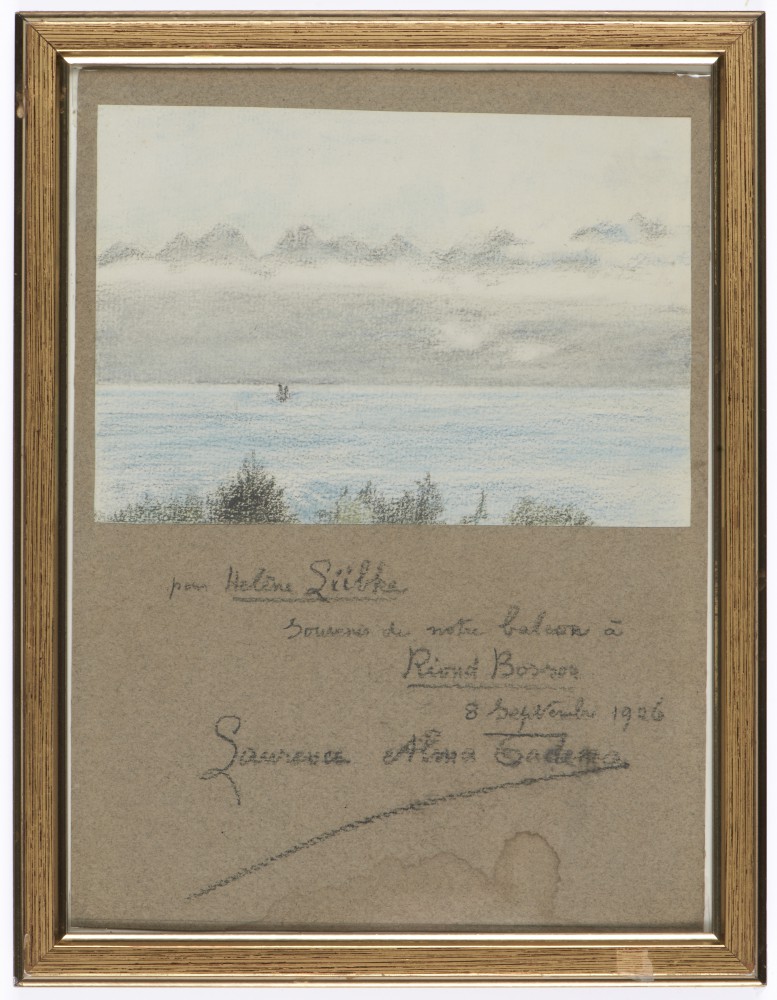 pour Helène Lübke
Souvenir de notre balcon à
Riond Bosson
8 Septembre 1926
Laurence Alma Tadema